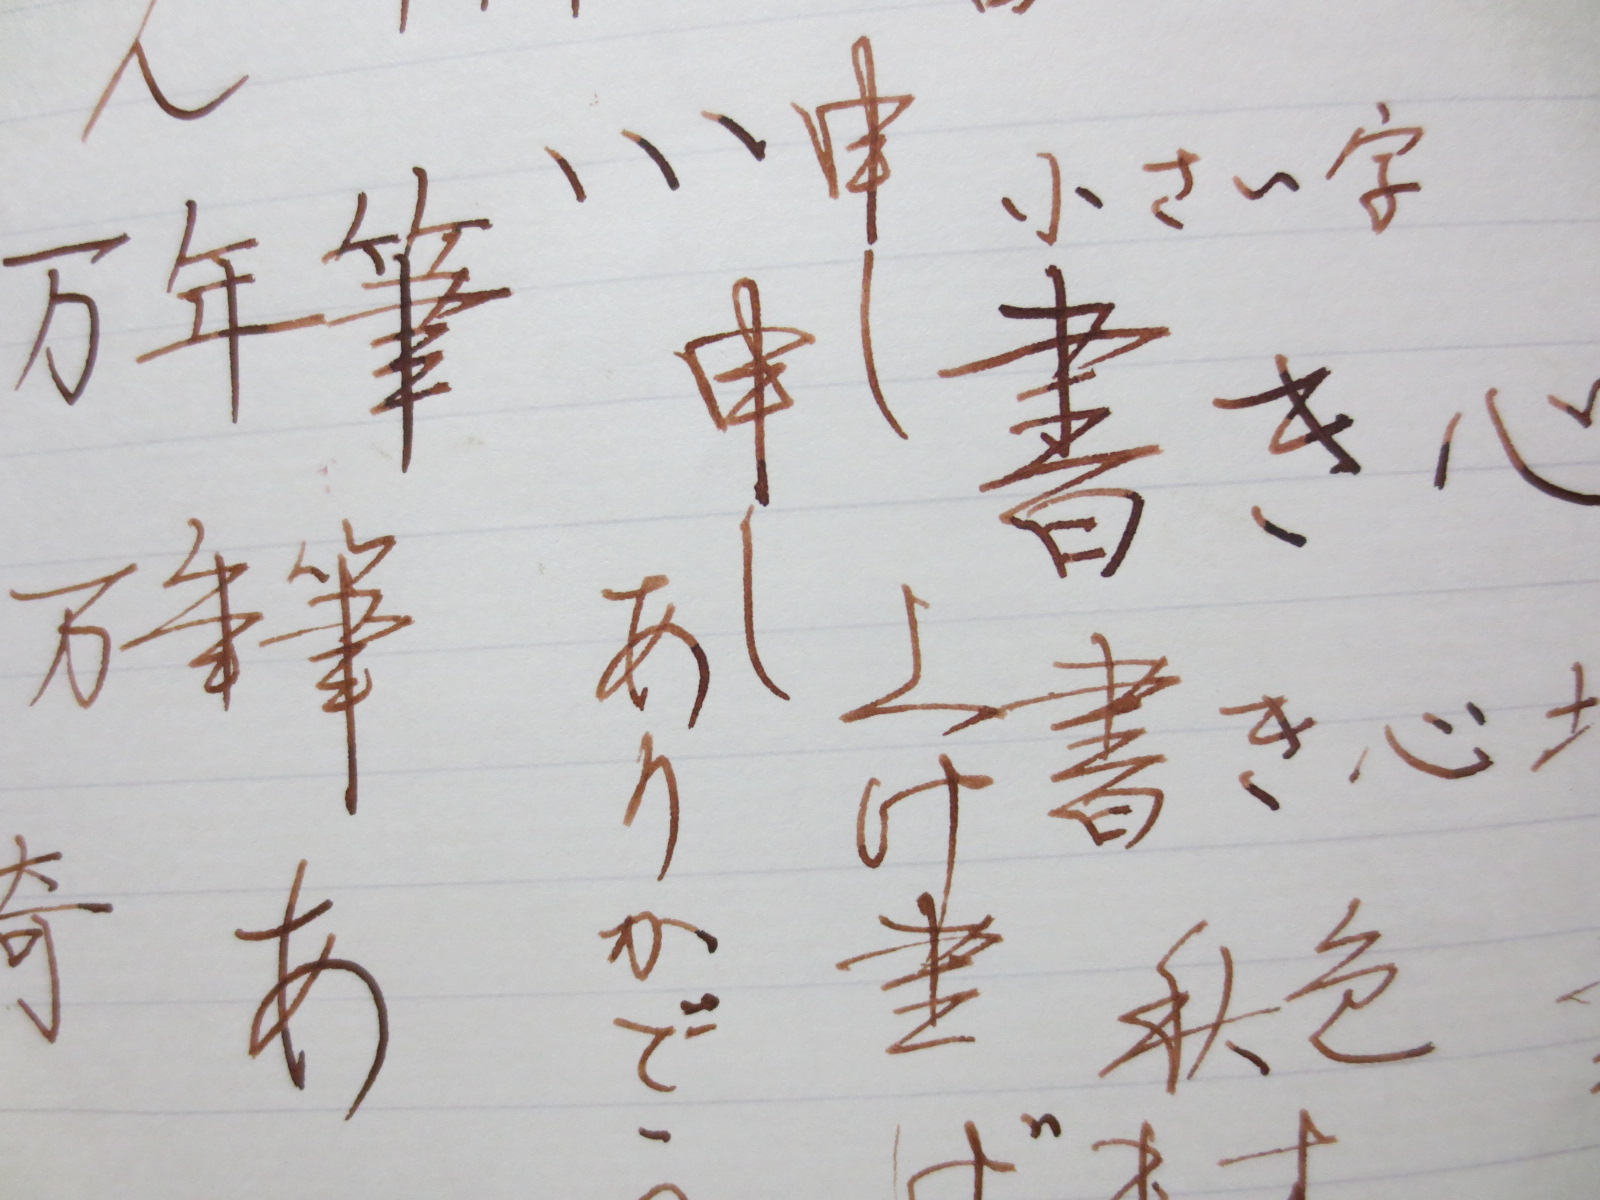 ん
小さい字
申し
万年筆
書き心
申し
万年筆
あ
あり
上げ
書き心地
かで
秋色
奇
げます